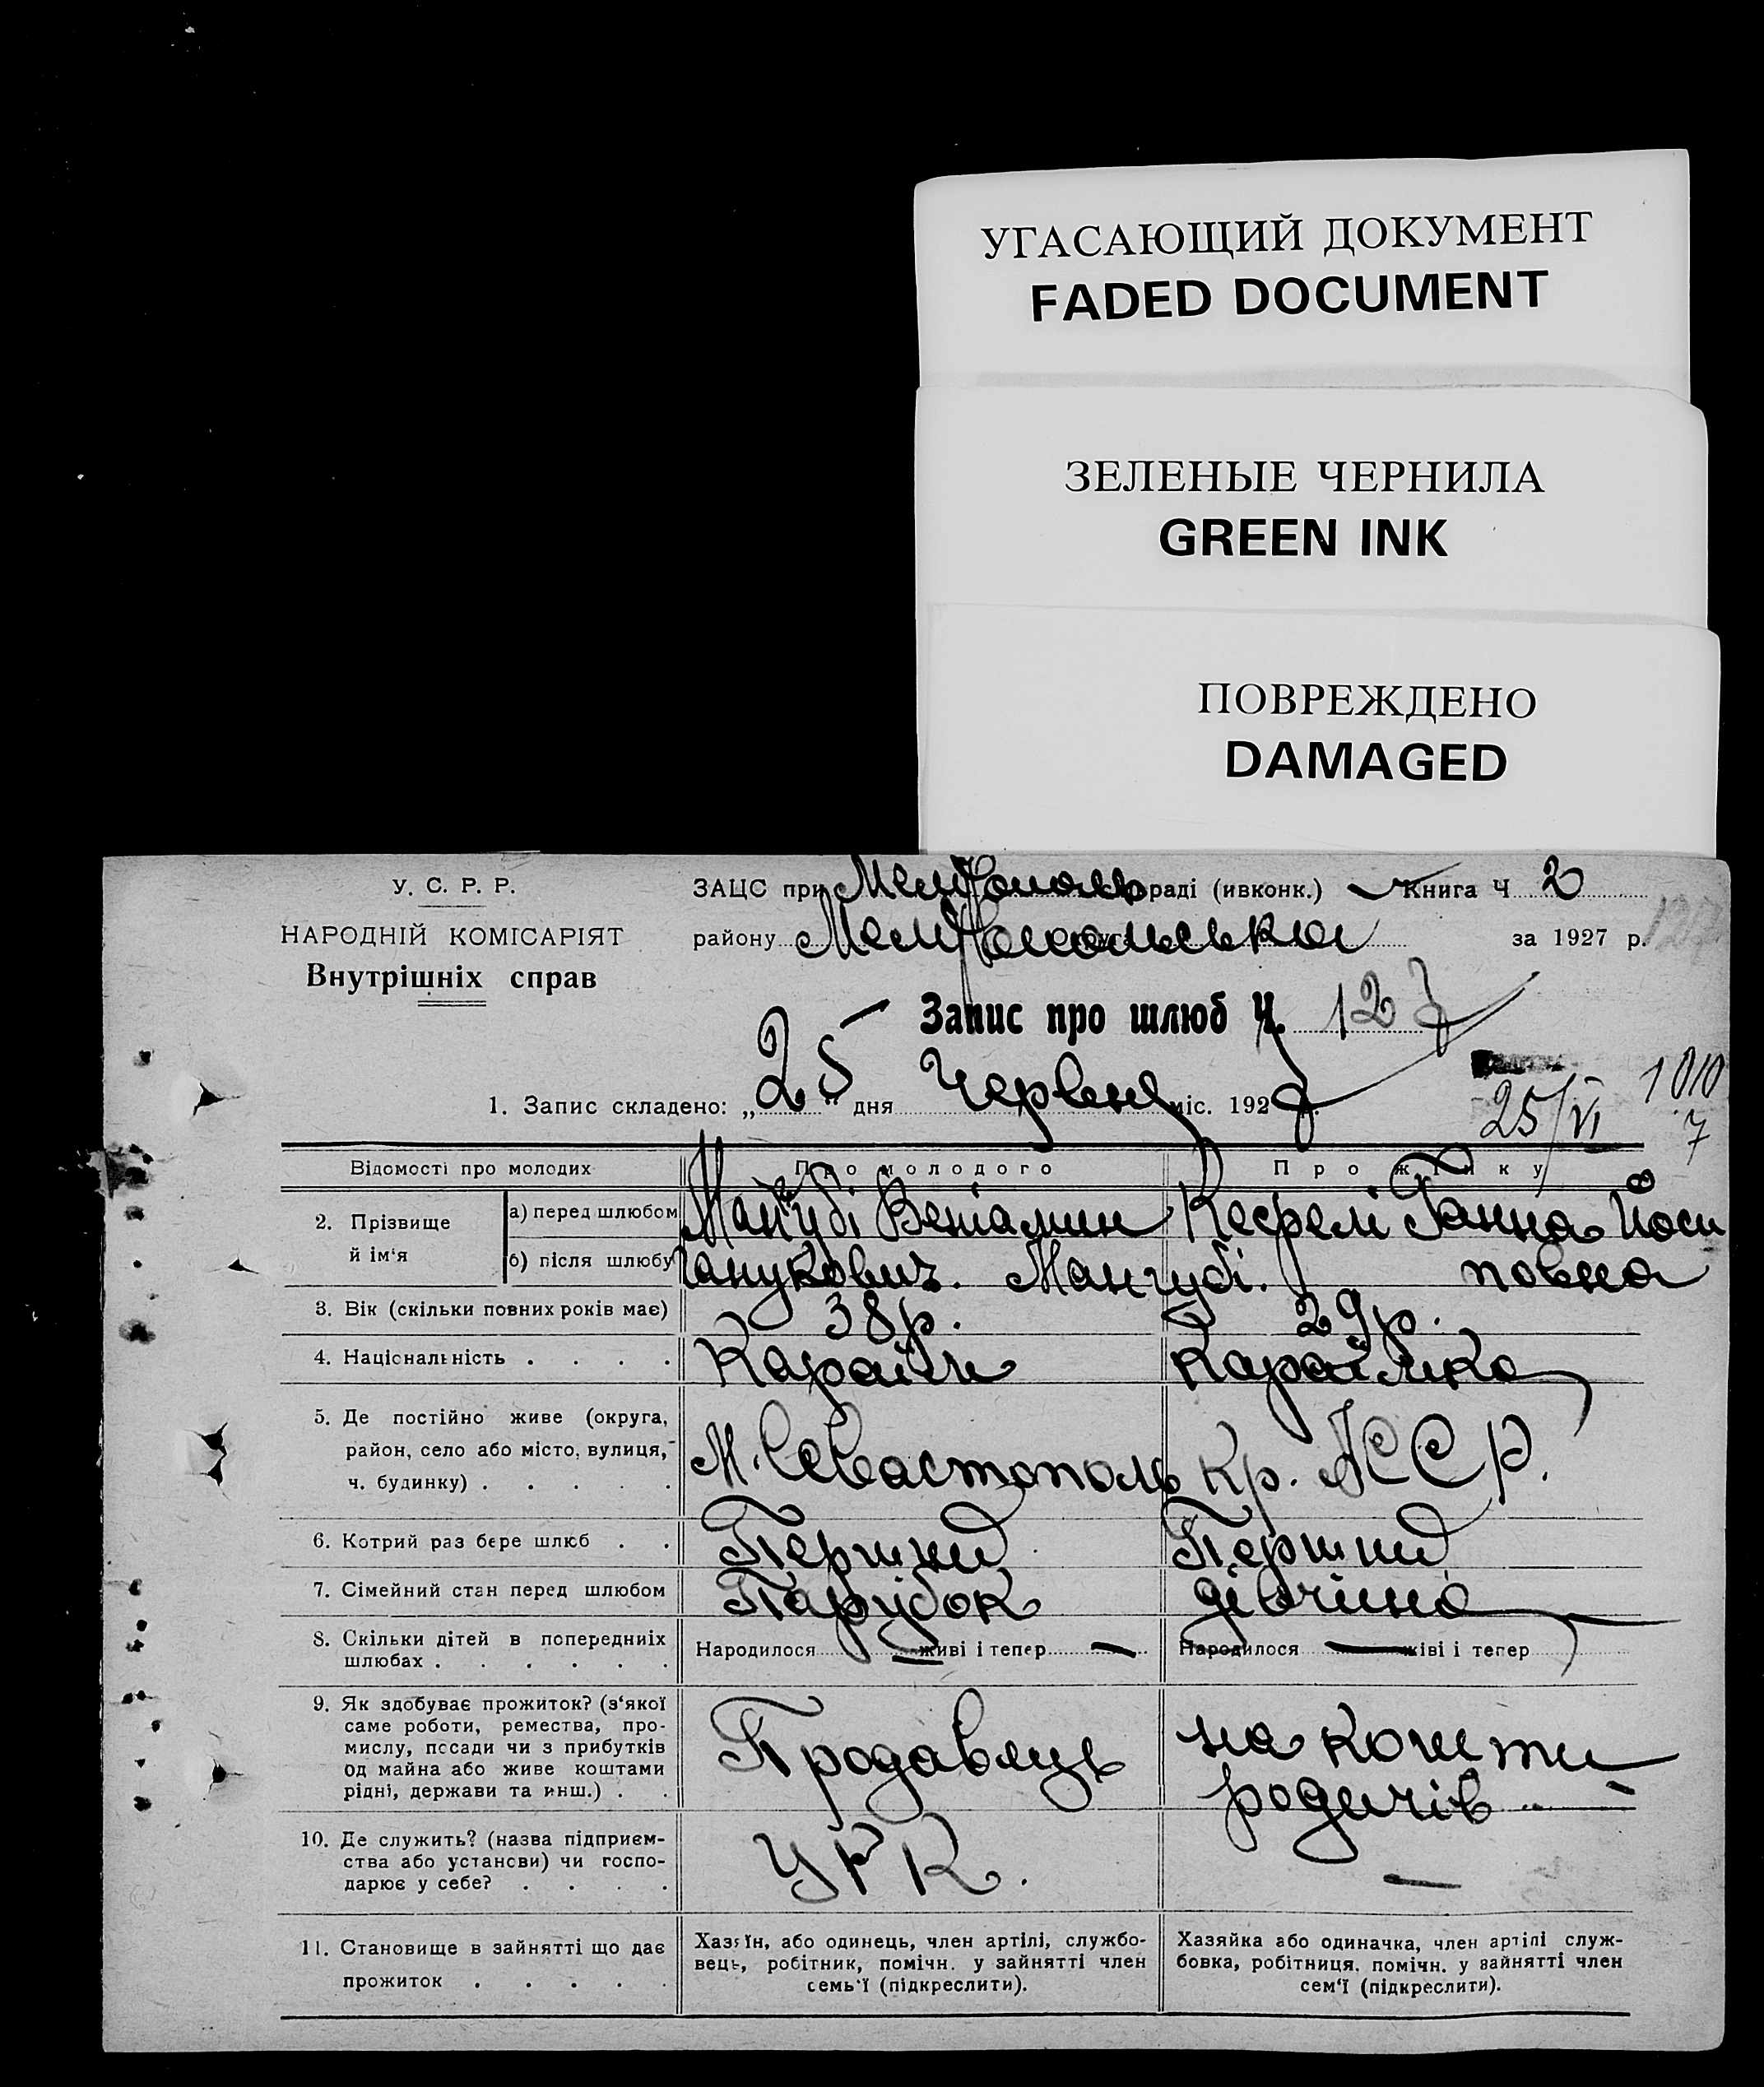 УГАСАЮЩИЙ ДОКУМЕНТ
FADED DOCUMENT
ЗЕЛЕНЫЕ ЧЕРНИЛА
GREEN INK
ПОВРЕЖДЕНО
DAMAGED
У. С. Р. Р.
НАРОДНІЙ КОМІСАРІЯТ
Внутрішніх справ
ЗАЦС при Мелітополь раді (ивконк.) Книга Ч 2
району Мелітопольська за 1927 р. 127
Запис про шлюб Ч. 127
1. Запис складено: „25" дня Червня міс. 1927
25/VI
1010
7
Відомості про молодих Про молодого Про жінку
2. Прізвище й ім'я
а) перед шлюбом Мангубі Веніамин Кефелі Ганна Йоси
б) після шлюбу Мангубі. повна
3. Вік (скільки повних років має) 38р. 29р.
4. Національність . . . . Караїм Караїмка
5. Де постійно живе (округа,
район, село або місто, вулиця,
ч. будинку) . . . . . М. Севастополь Кр. АССР.
6. Котрий раз бере шлюб . . Перший Перший
7. Сімейний стан перед шлюбом Парубок дівчина
8. Скільки дітей в попередниіх
шлюбах . . . . . . Народилося — живі і тепер — Народилося — живі і тепер
9. Як здобуває прожиток? (з'якої
саме роботи, ремества, про-
мислу, посади чи з прибутків
од майна або живе коштами
рідні, держави та инш.) . .
Продавець на кошти
родичів
10. Де служить? (назва підприєм-
ства або установи) чи госпо-
дарює у себе? . . . . —
11. Становище в зайнятті що дає
прожиток . . . . .
Хазяїн, або одинець, член артілі, службо-
вець, робітник, помічн. у зайнятті член
семь'ї (підкреслити).
Хазяйка або одиначка, член артілі служ-
бовка, робітниця, помічн. у зайнятті член
сем'ї (підкреслити).